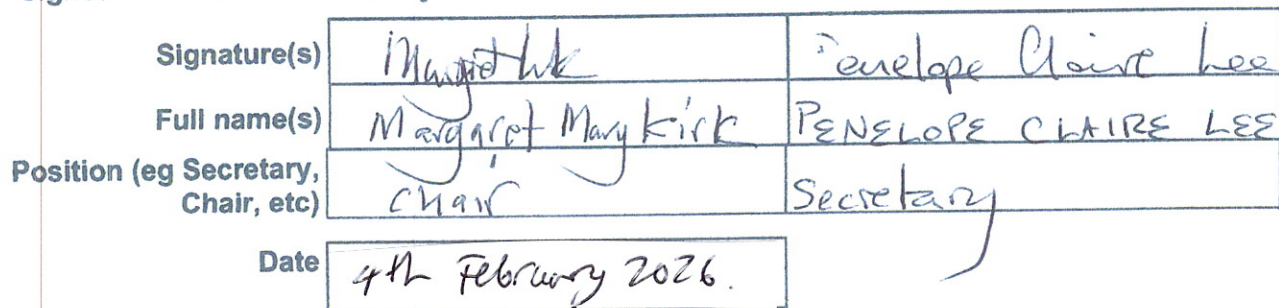 Signature(s) Margaret Kirk Penelope Claire Lee
Full name(s) Margaret Mary Kirk PENELOPE CLAIRE LEE
Position (eg Secretary,
Chair, etc) Chair Secretary
Date 4th February 2026.